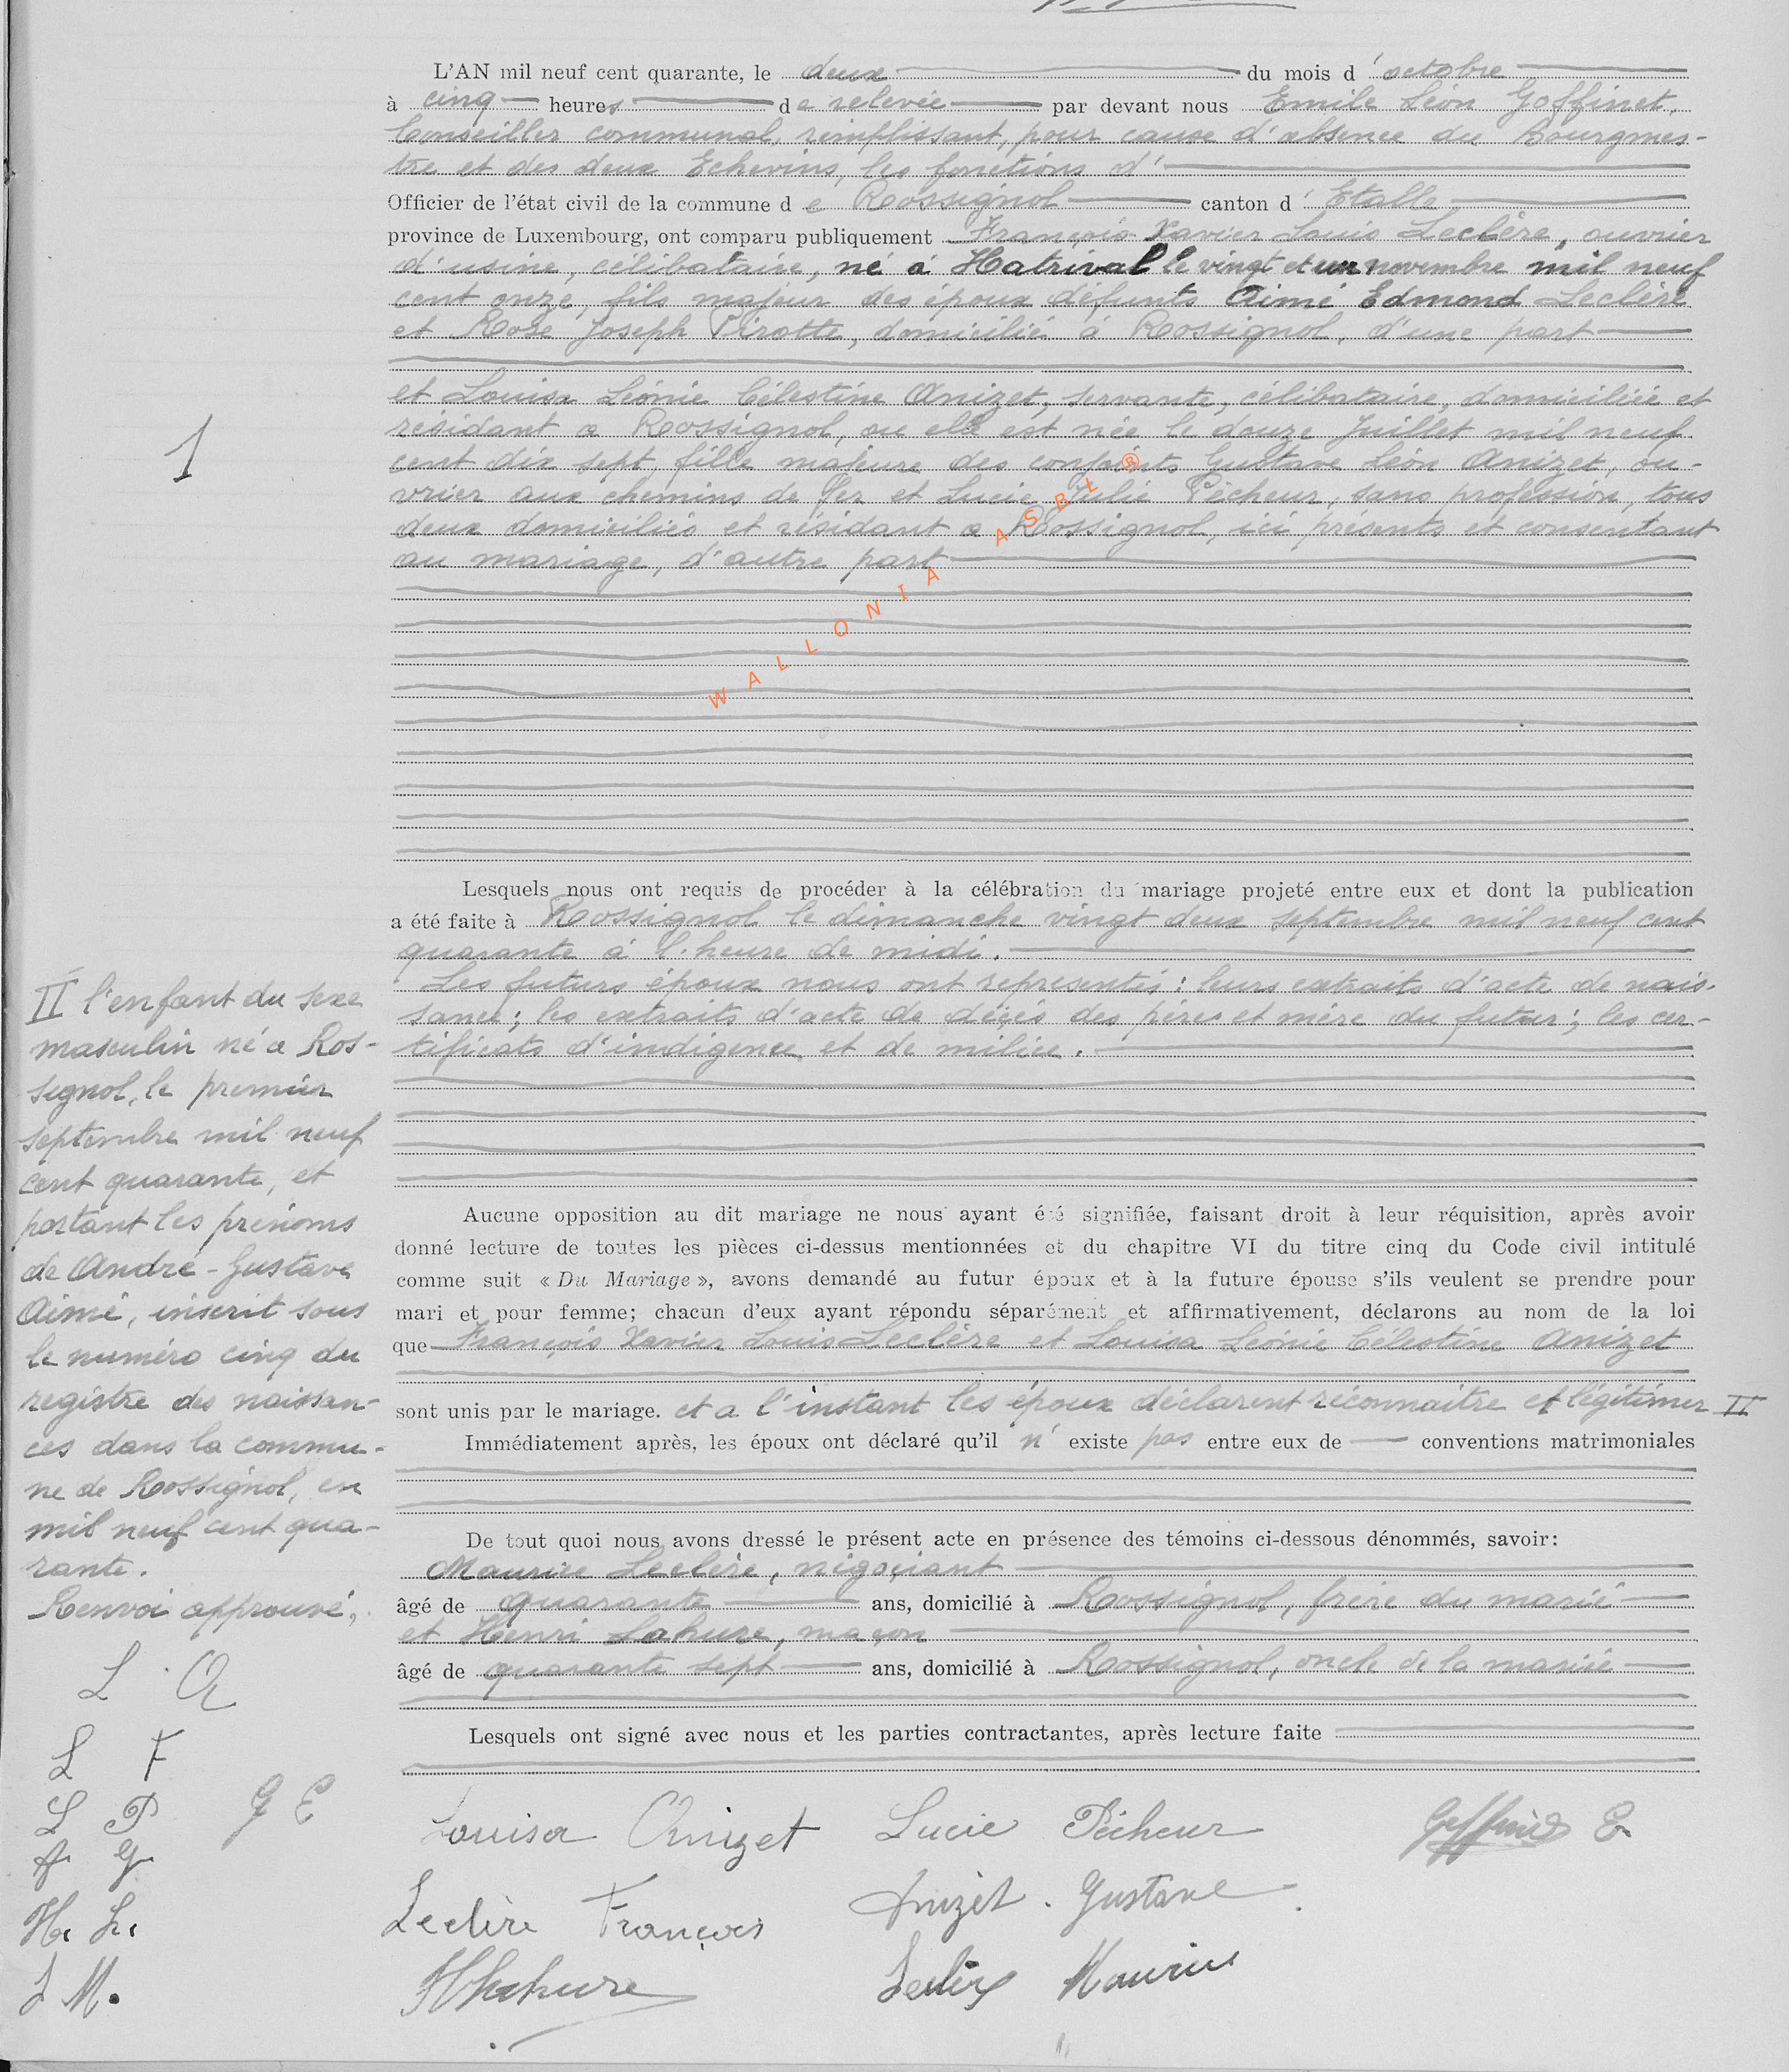 L'AN mil neuf cent quarante, le deux du mois d'octobre
à cinq heures de relevée par devant nous Emile Léon Goffinet,
Conseiller communal, remplissant, pour cause d'absence du Bourgmes-
tre et des deux Echevins, les fonctions d'
Officier de l'état civil de la commune de Rossignol canton d'Etalle
province de Luxembourg, ont comparu publiquement François Xavier Louis Leclère, ouvrier
d'usine, célibataire, né à Hatrival le vingt et un novembre mil neuf
cent onze, fils majeur des époux défunts Aimé Edmond Leclère
et Rose Joseph Pirotte, domicilié à Rossignol, d'une part
et Louisa Léonie Célestine Anizet, servante, célibataire, domiciliée et
résidant a Rossignol, ou elle est née le douze Juillet mil neuf
1
cent dix sept, fille majeure des conjoints Gustave Léon Anizet, ou-
vrier aux chemins de fer et Lucie Julie Pêcheur, sans profession, tous
deux domiciliés et résidant a Rossignol, ici présents et consentant
au mariage, d'autre part
WALLONIA ASBL ®
Lesquels nous ont requis de procéder à la célébration du mariage projeté entre eux et dont la publication
a été faite à Rossignol le dimanche vingt deux septembre mil neuf cent
quarante à l'heure de midi.
Les futurs époux nous ont representés : leurs extraits d'acte de nais-
sance; les extraits d'acte de décés des pères et mère du futur; les cer-
tificats d'indigence et de milice.
Aucune opposition au dit mariage ne nous ayant été signifiée, faisant droit à leur réquisition, après avoir
donné lecture de toutes les pièces ci-dessus mentionnées et du chapitre VI du titre cinq du Code civil intitulé
comme suit « Du Mariage », avons demandé au futur époux et à la future épouse s'ils veulent se prendre pour
mari et pour femme; chacun d'eux ayant répondu séparément et affirmativement, déclarons au nom de la loi
que François Xavier Louis Leclère et Louisa Léonie Célestine Anizet
sont unis par le mariage. et a l'instant les époux déclarent réconnaitre et légitimer II
Immédiatement après, les époux ont déclaré qu'il n'existe pas entre eux de conventions matrimoniales
De tout quoi nous avons dressé le présent acte en présence des témoins ci-dessous dénommés, savoir:
Maurice Leclère, négociant
âgé de quarante ans, domicilié à Rossignol, frère du marié
et Henri Lahure, maçon
âgé de quarante sept ans, domicilié à Rossignol, oncle de la mariée
Lesquels ont signé avec nous et les parties contractantes, après lecture faite
II l'enfant du sexe
masculin né a Ros-
signol, le premier
septembre mil neuf
cent quarante, et
portant les prénoms
de André-Gustave
Aimé, inscrit sous
le numéro cinq du
registre des naissan-
ces dans la commu-
ne de Rossignol, en
mil neuf cent qua-
rante.
Renvoi approuvé,
L. A
L F
L P G E
A G
H. L.
L M.
Louisa Anizet Lucie Pêcheur Goffinet E
Leclère François Anizet. Gustave
HLahure Leclère Maurice